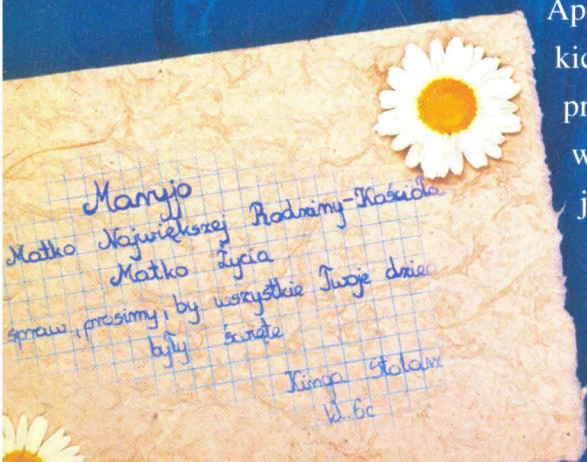 Maryjo
Matko Największej Rodziny-Kościoła
Matko Życia
spraw, prosimy, by wszystkie Twoje dziec
były święte
Kinga Stolarz
kl. 6c
Ap
kic
pr
w
j